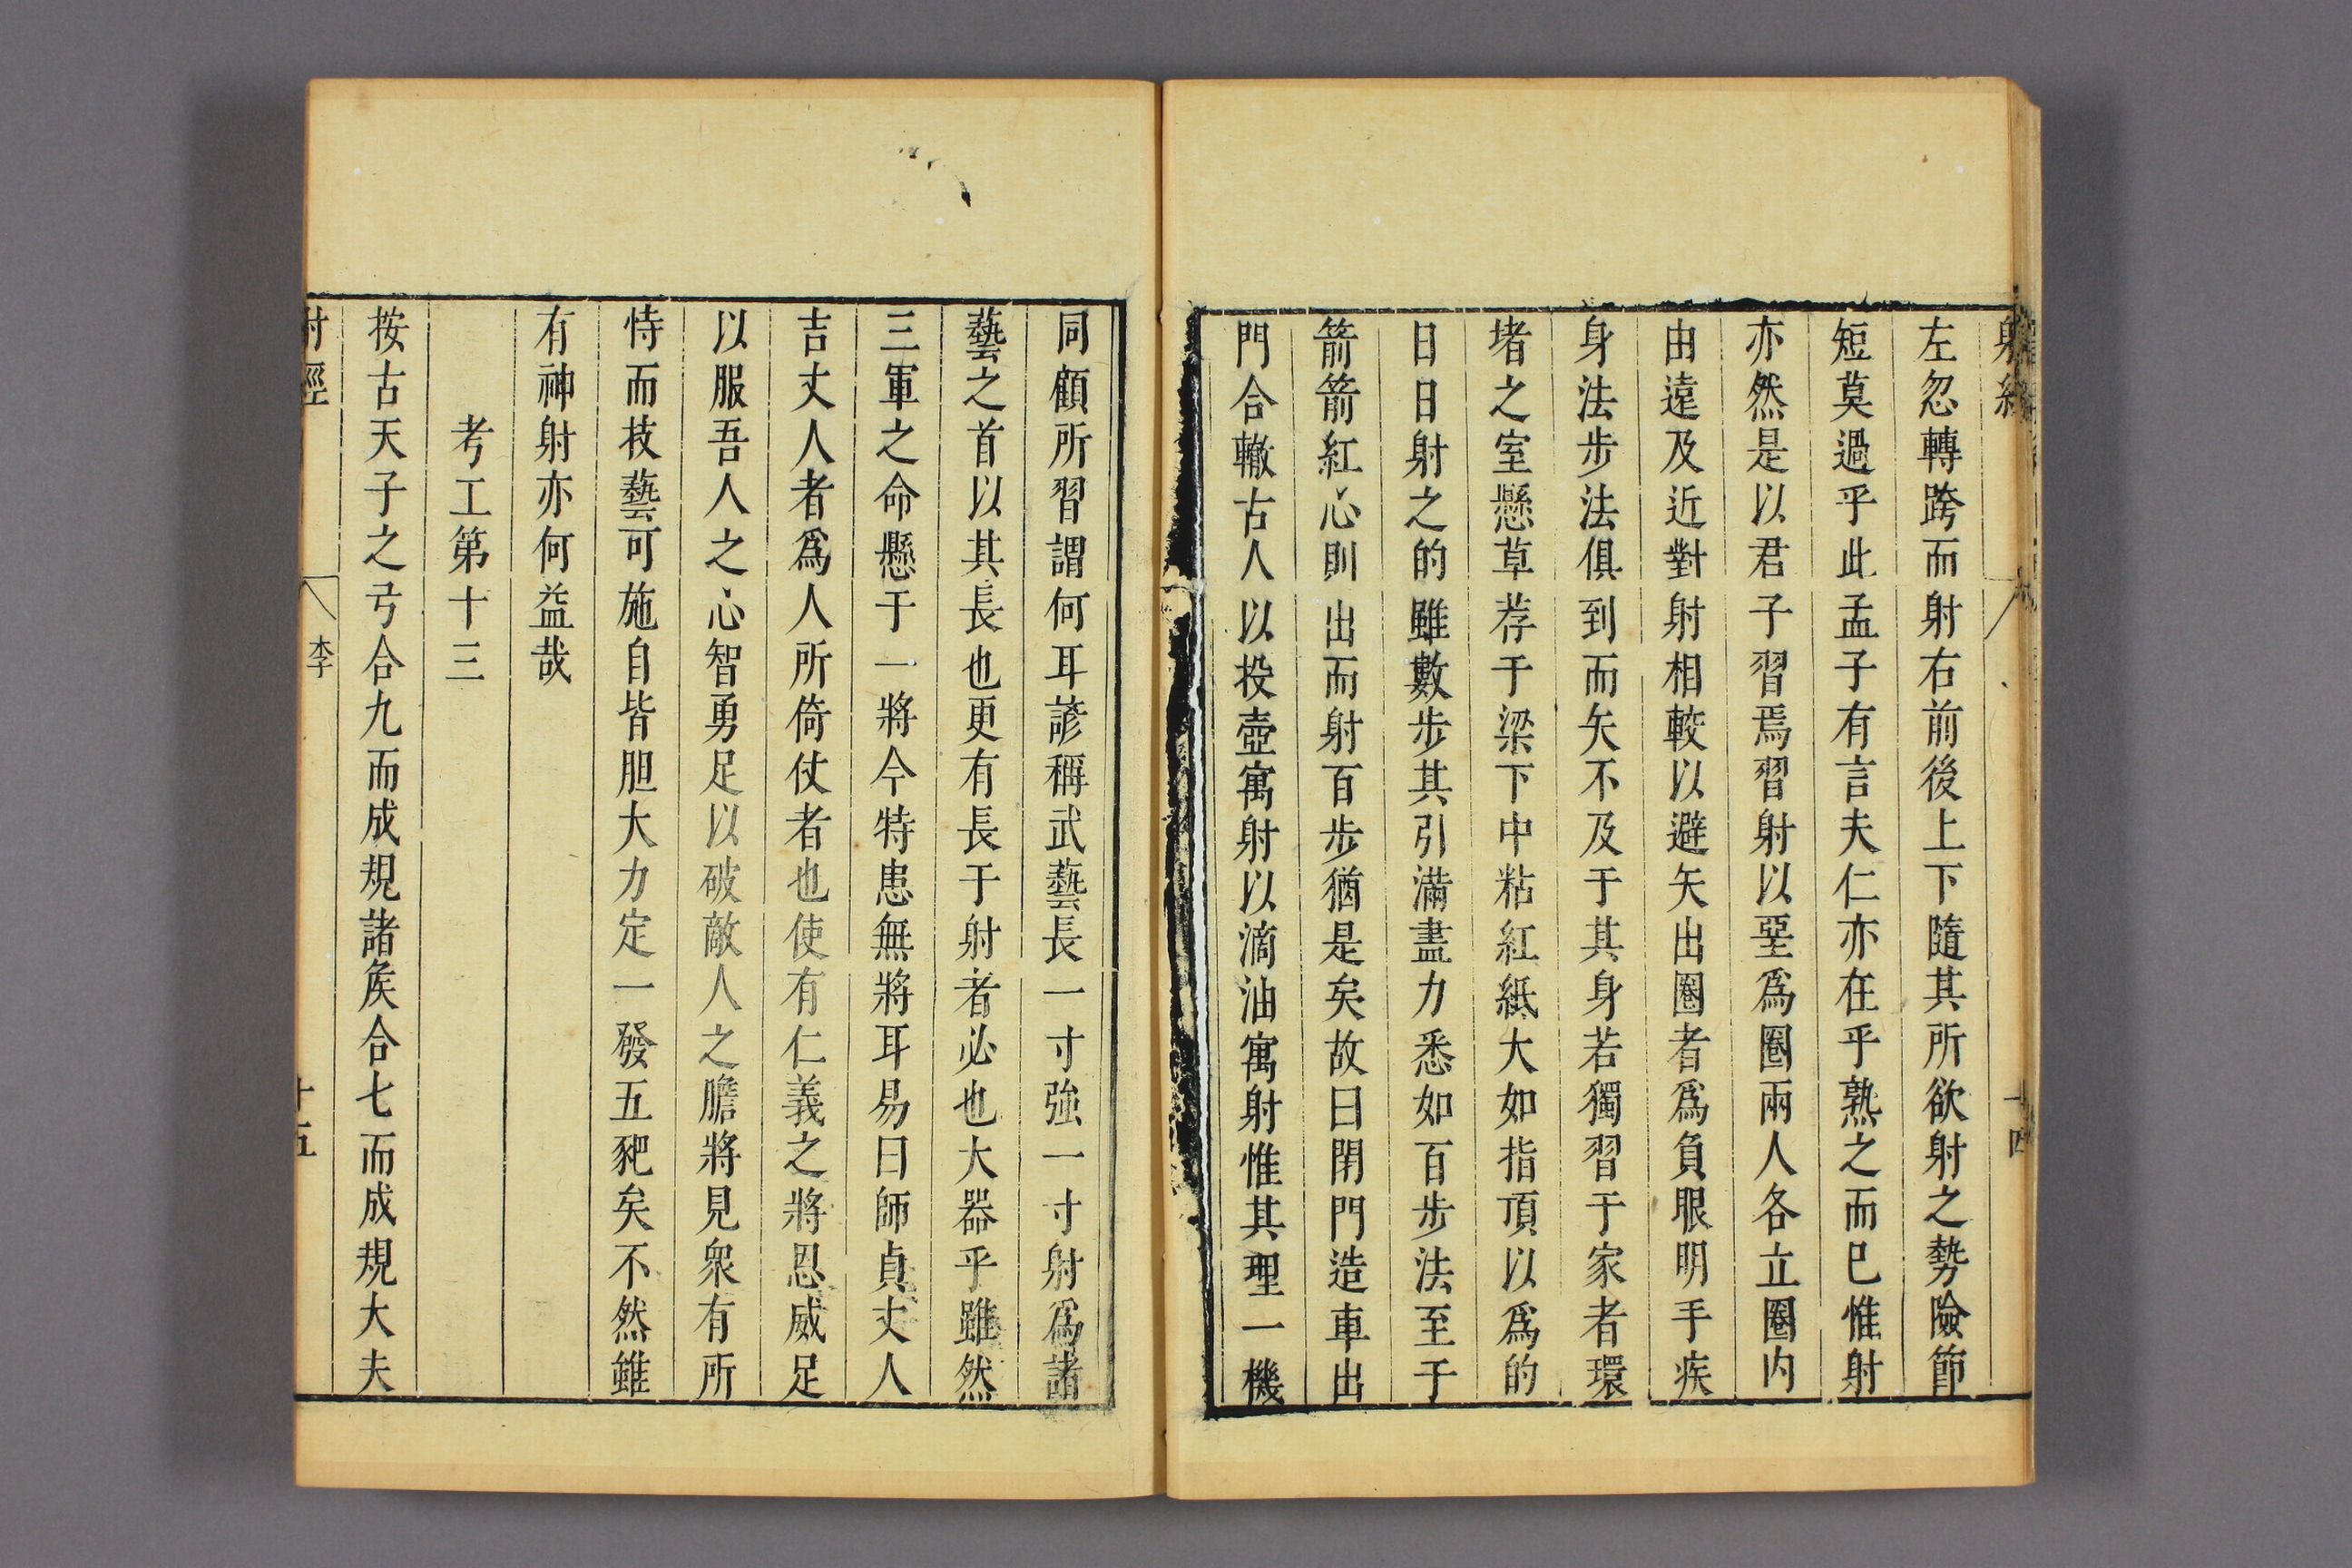 射經
十四
左忽轉跨而射右前後上下隨其所欲射之勢險節
短莫過乎此孟子有言夫仁亦在乎熟之而巳惟射
亦然是以君子習焉習射以堊爲圈兩人各立圈内
由遠及近對射相較以避矢出圈者爲負眼明手疾
身法步法俱到而矢不及于其身若獨習于家者環
堵之室懸草荐于梁下中粘紅紙大如指頂以爲的
日日射之的雖數步其引滿盡力悉如百步法至于
箭箭紅心則出而射百步猶是矣故曰閉門造車出
門合轍古人以投壺寓射以滴油寓射惟其理一機
同顧所習謂何耳諺稱武藝長一寸強一寸射爲諸
藝之首以其長也更有長于射者必也大器乎雖然
三軍之命懸于一將今特患無將耳易曰師貞丈人
吉丈人者爲人所倚仗者也使有仁義之將恩威足
以服吾人之心智勇足以破敵人之膽將見衆有所
恃而技藝可施自皆胆大力定一發五豝矣不然雖
有神射亦何益哉
考工第十三
按古天子之弓合九而成規諸矦合七而成規大夫
射經
李
十五